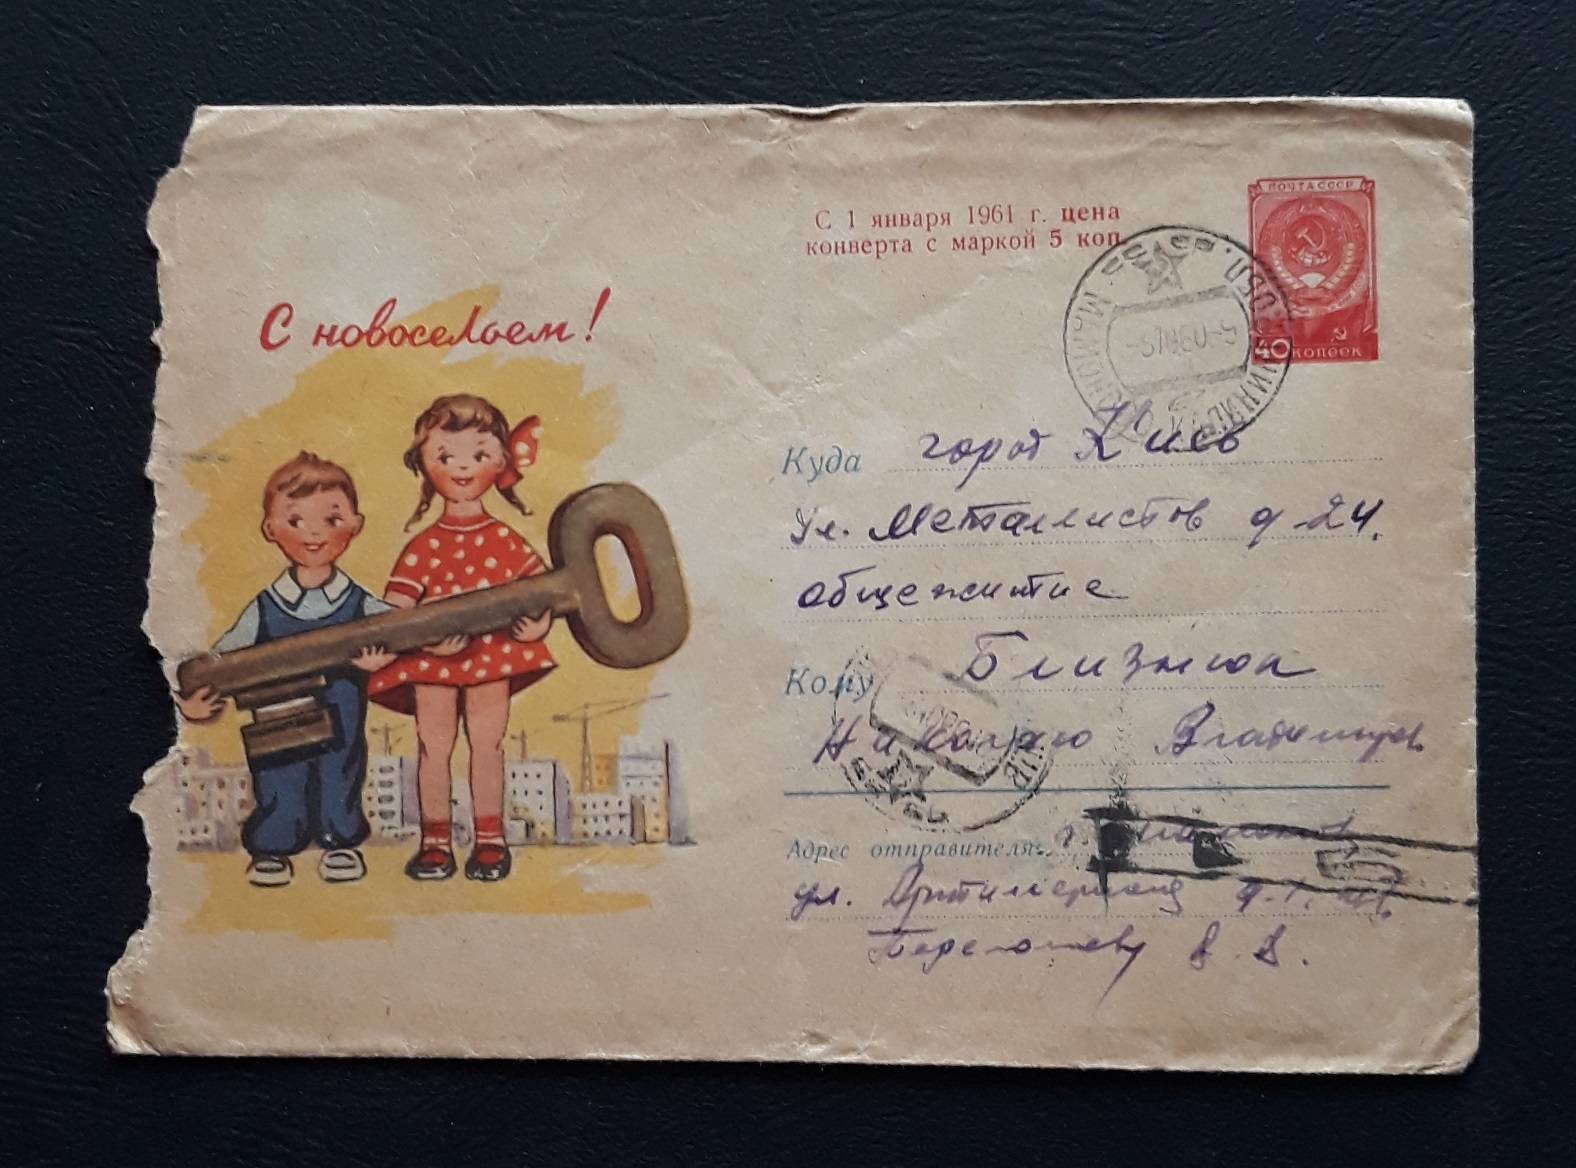 С новосельем!
С 1 января 1961 г. цена
конверта с маркой 5 коп.
ПОЧТА СССР
40 КОПЕЕК
Куда город Киев
Ул. Металлистов д 24.
общежитие
Кому Близнюк
Николаю Владимир
Адрес отправителя: г.
ул.
В. В.